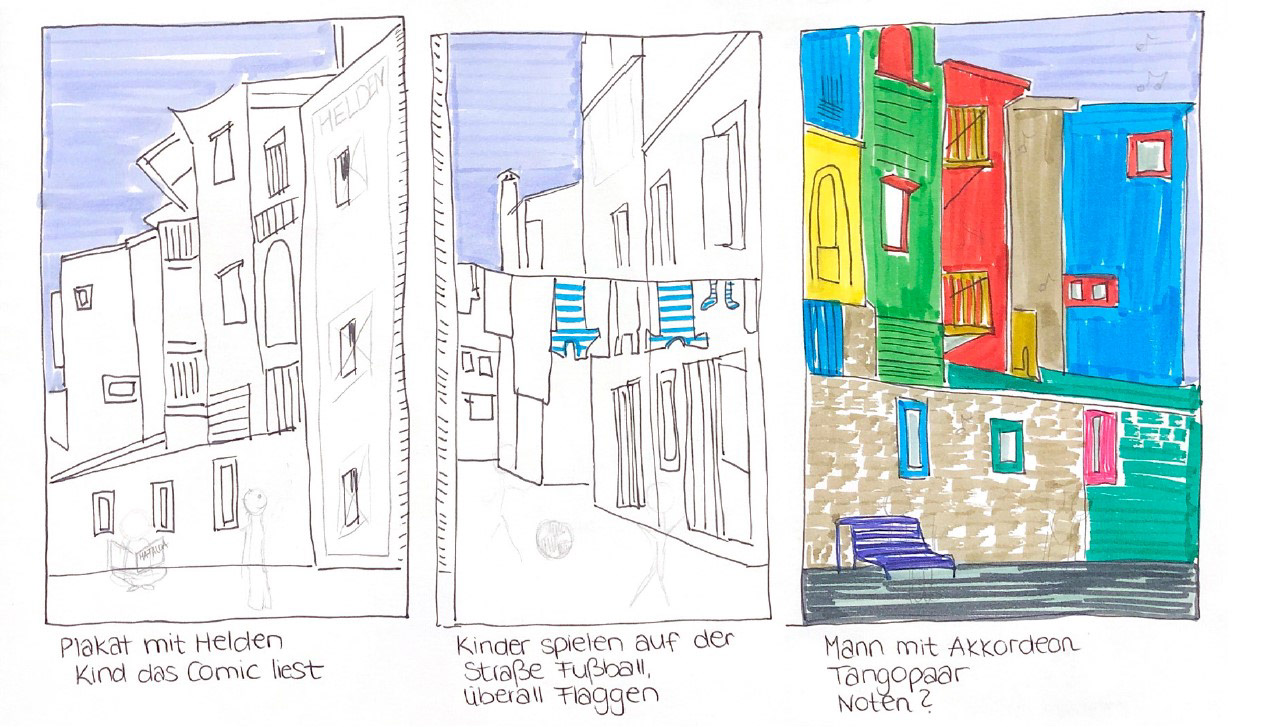 HELDEN
MAFALDA
Plakat mit Helden
Kind das Comic liest
Kinder spielen auf der
Straße Fußball,
überall Flaggen
Mann mit Akkordeon
Tangopaar
Noten?